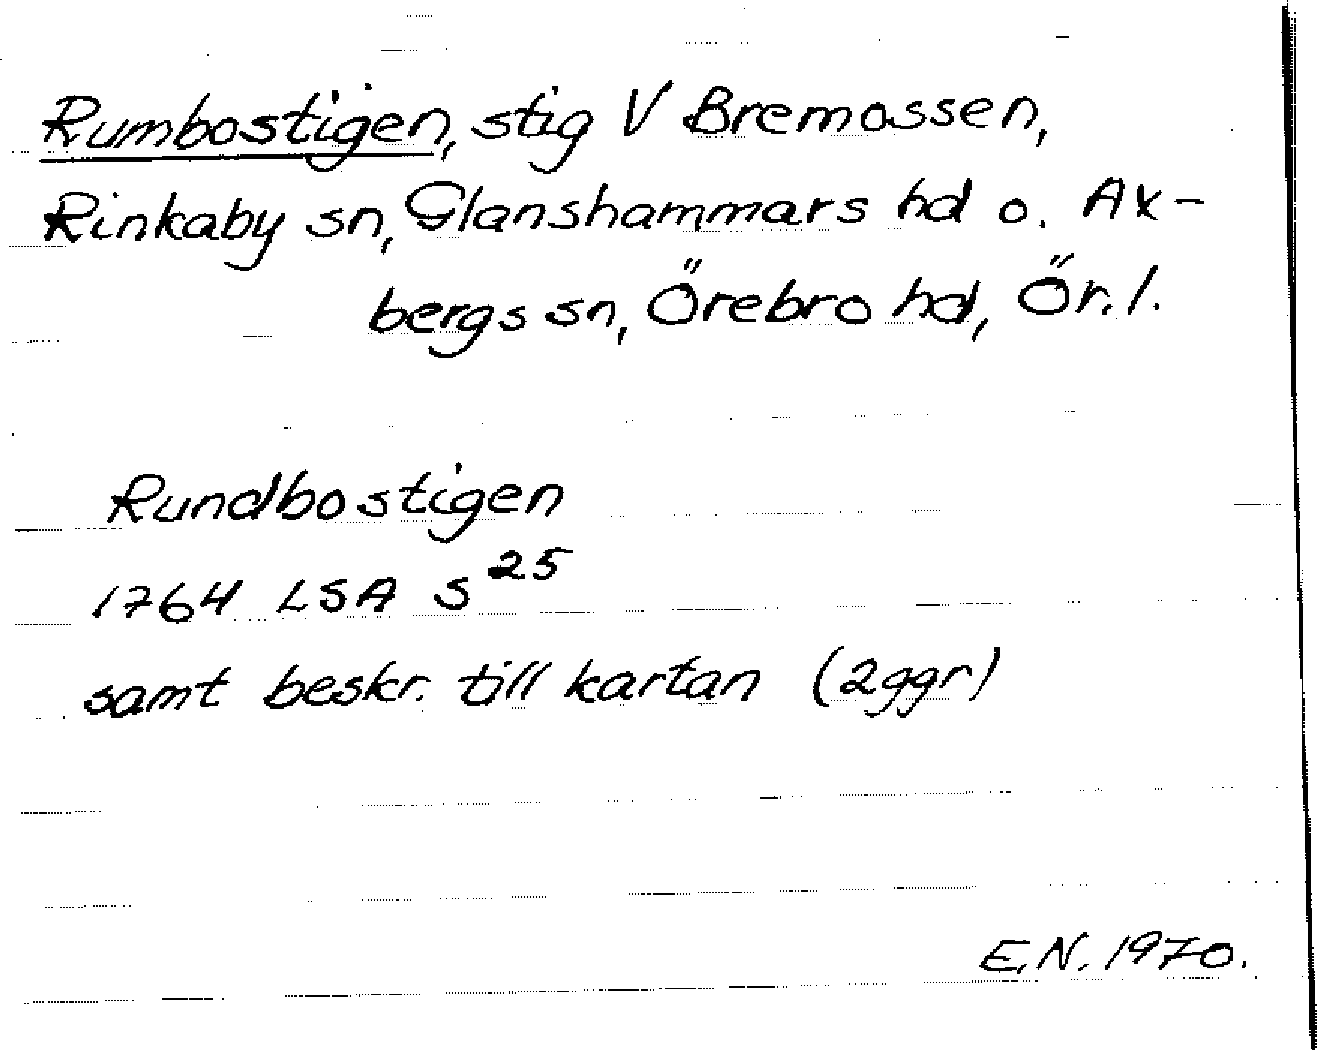 Rumbostigen, stig V Bremossen,
Rinkaby sn, Glanshammars hd o. Ax-
bergs sn, Örebro hd, Ör. l.
Rundbostigen
1764 LSA S 25
samt beskr. till kartan (2ggr)
E.N. 1970.